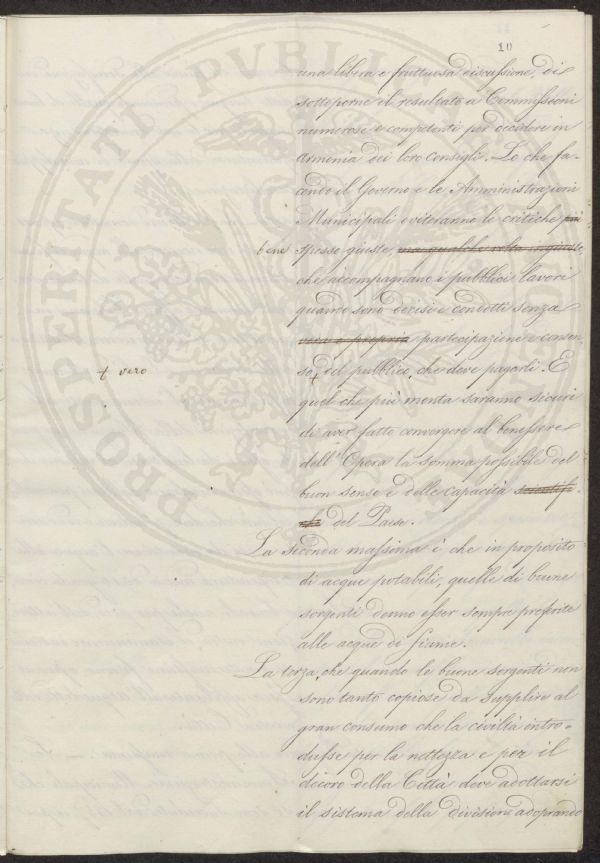 10
una libera e fruttuosa discussione, di
sottoporne il resultato a Commissioni
numerose e competenti per decidere in
armonia dei loro consigli. Lo che fa-
cendo il Governo e le Amministrazioni
Municipali eviteranno le critiche più
bene spesso giuste, ma qualche volta ingiuste,
che accompagnano i pubblici lavori
quando sono decisi e condotti senza
vera e propria partecipazione e consen-
+ vero
so + del pubblico, che deve pagarli. E
quel che più monta saranno sicuri
di aver fatto convergere al benessere
dell'Opera la somma possibile del
buon senso e delle capacità scientifi-
che del Paese.
La seconda massima è che in proposito
di acque potabili, quelle di buone
sorgenti denno esser sempre preferite
alle acque di fiume.
La terza, che quando le buone sorgenti non
sono tanto copiose da supplire al
gran consumo che la civiltà intro-
dusse per la nettezza e per il
decoro della Città deve adottarsi
il sistema della divisione adoprando
PROSPERITATI PVBLIC